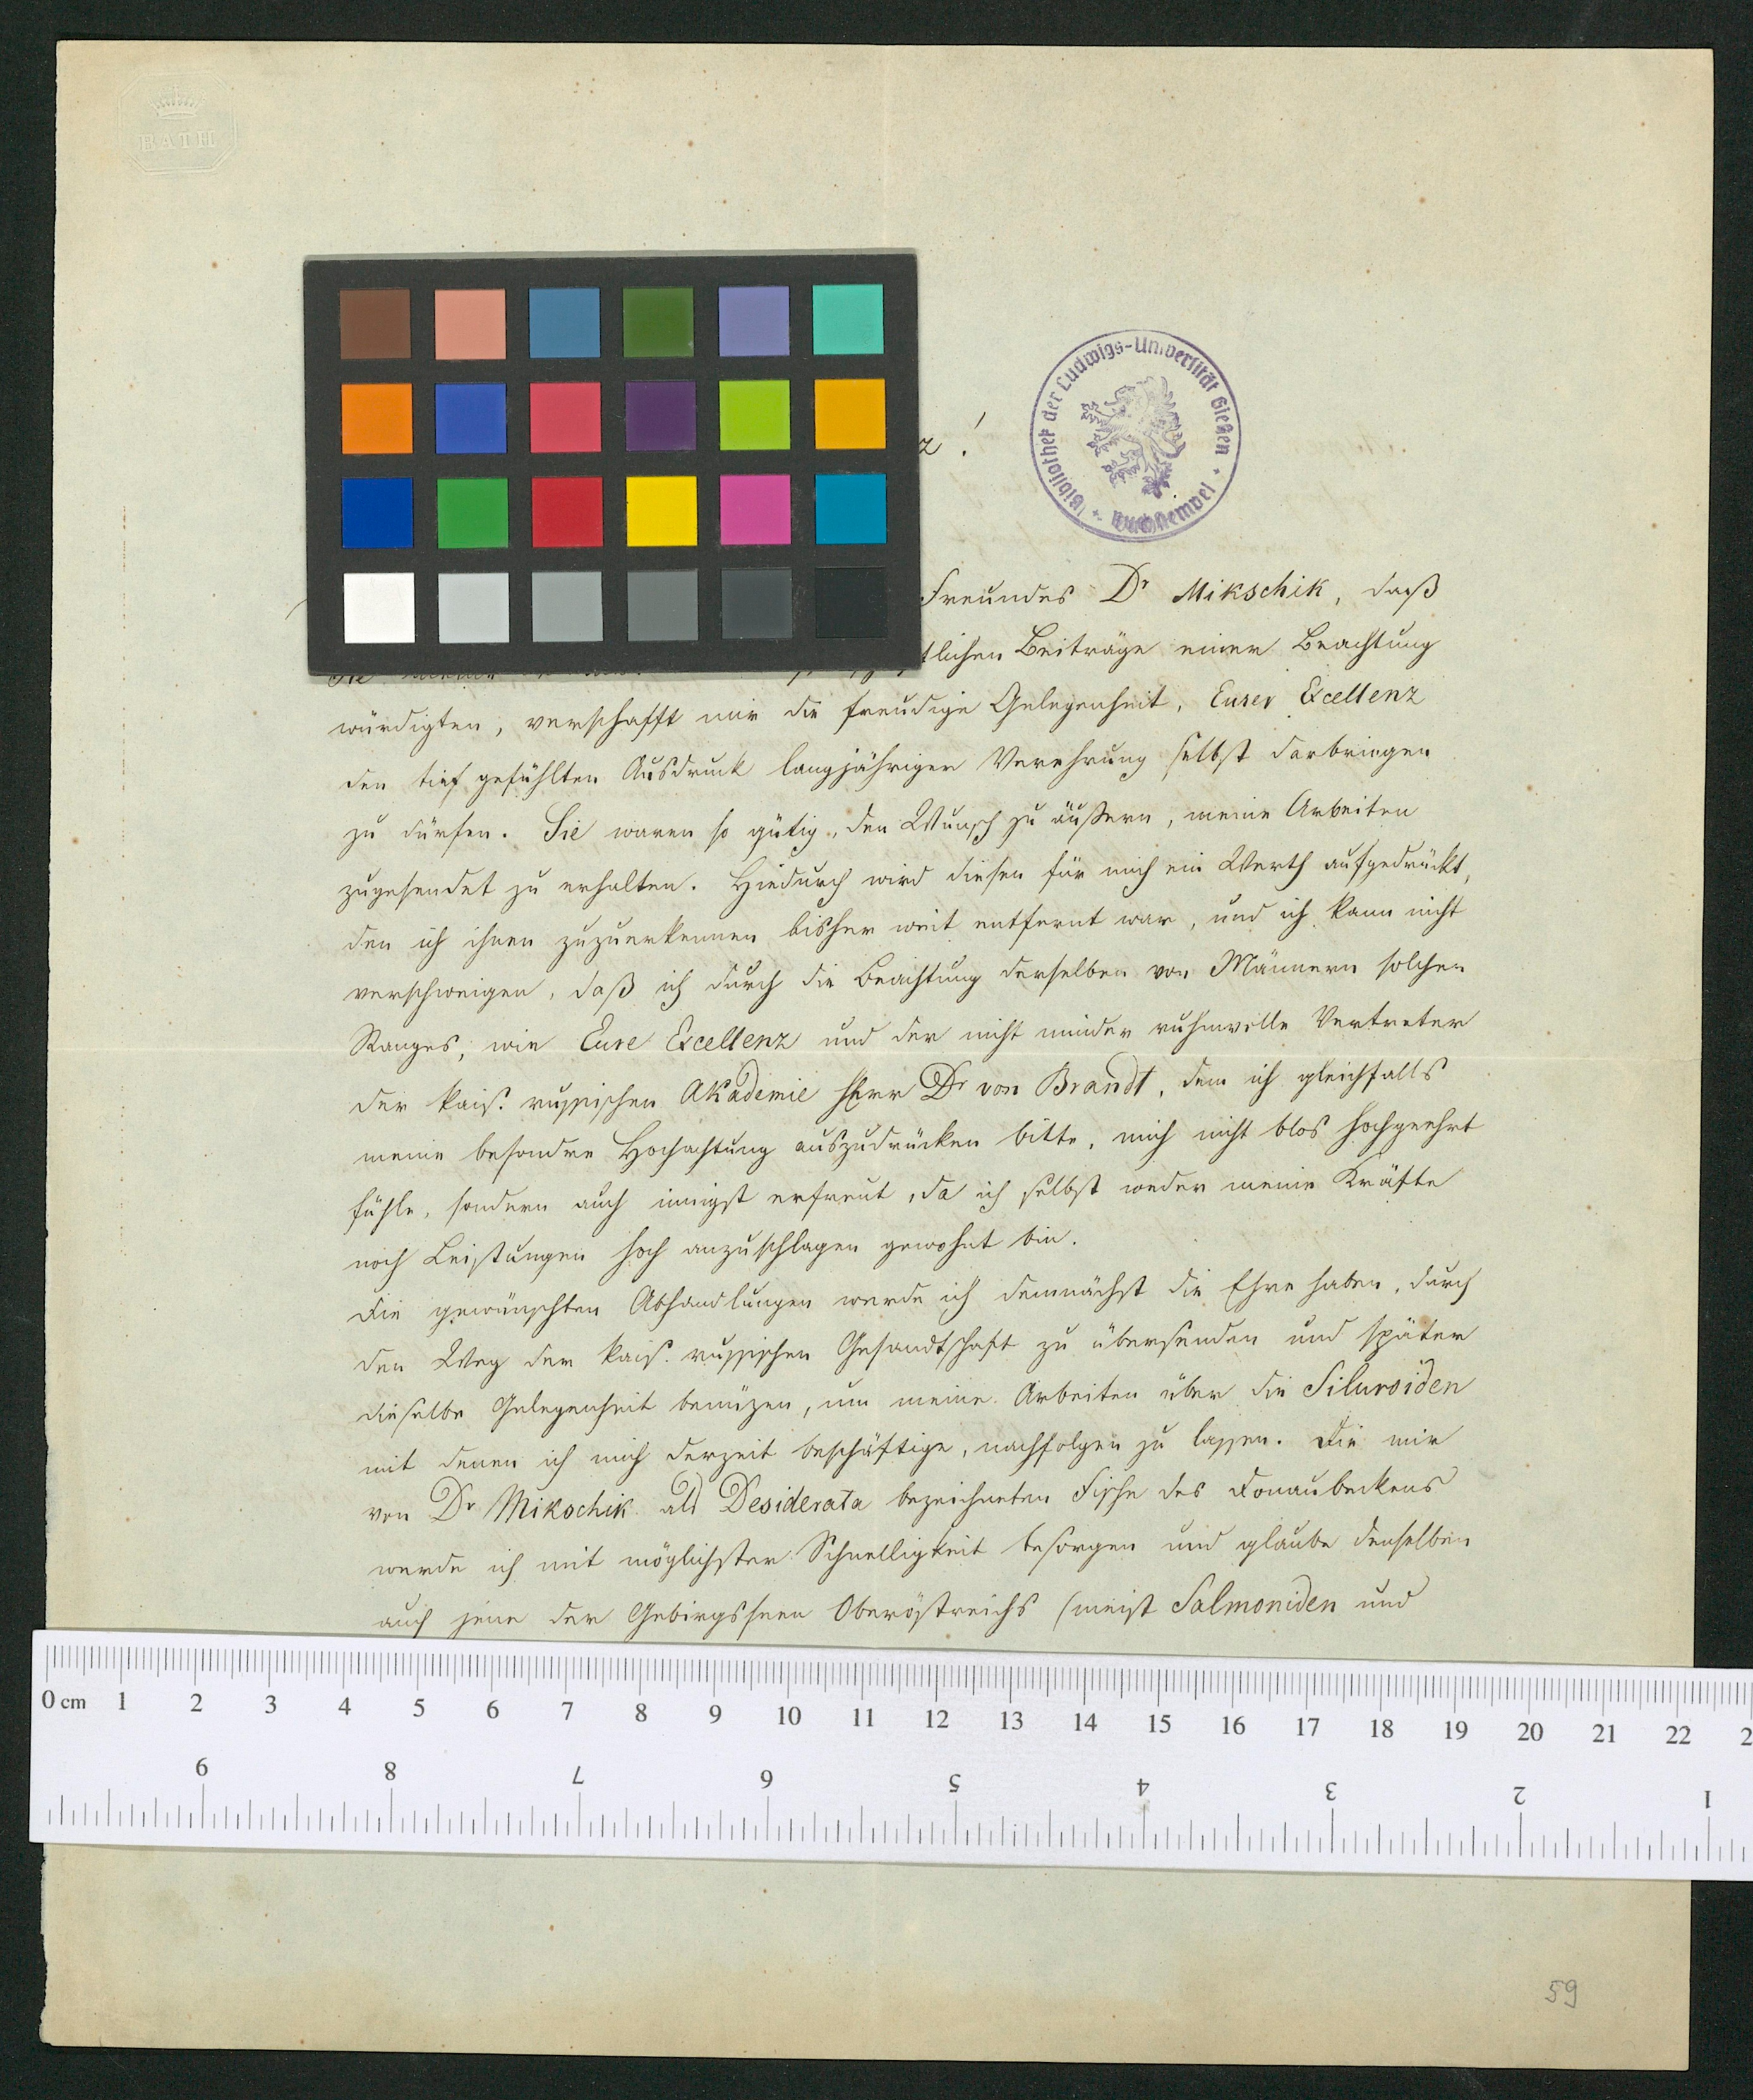 BATH
z!
Bibliothek der Ludwigs-Universität Gießen
Buchstempel
Freundes Dr Mikschik, daß
Sie meiner tlichen Beiträge einer Beachtung
würdigten, verschafft mir die freudige Gelegenheit, Eurer Excellenz
den tief gefühlten Ausdruck langjähriger Verehrung selbst darbringen
zu dürfen. Sie waren so gütig, den Wunsch zu äußern, meine Arbeiten
zugesendet zu erhalten. Hiedurch wird diesen für mich ein Werth aufgedrückt,
den ich ihnen zuzuerkennen bisher weit entfernt war, und ich kann nicht
verschweigen, daß ich durch die Beachtung derselben von Männern solchen
Ranges, wie Eure Excellenz und der nicht minder ruhmvolle Vertreter
der kais. russischen Akademie Herr Dr von Brandt, dem ich gleichfalls
meine besondre Hochachtung auszudrücken bitte, mich nicht blos hochgeehrt
fühle, sondern auch innigst erfreut, da ich selbst weder meine Kräfte
noch Leistungen hoch anzuschlagen gewohnt bin.
Die gewünschten Abhandlungen werde ich demnächst die Ehre haben, durch
den Weg der kais. russischen Gesandtschaft zu übersenden und später
dieselbe Gelegenheit benüzen, um meine Arbeiten über die Siluroiden
mit denen ich mich derzeit beschäftige, nachfolgen zu lassen. Die mir
von Dr Mikschik als Desiderata bezeichneten Fische des Donaubeckens
werde ich mit möglichster Schnelligkeit besorgen und glaube denselben
auch jene der Gebirgsseen Oberöstreichs (meist Salmoniden und
0 cm 1 2 3 4 5 6 7 8 9 10 11 12 13 14 15 16 17 18 19 20 21 22 2
9 8 7 6 5 4 3 2 1
59